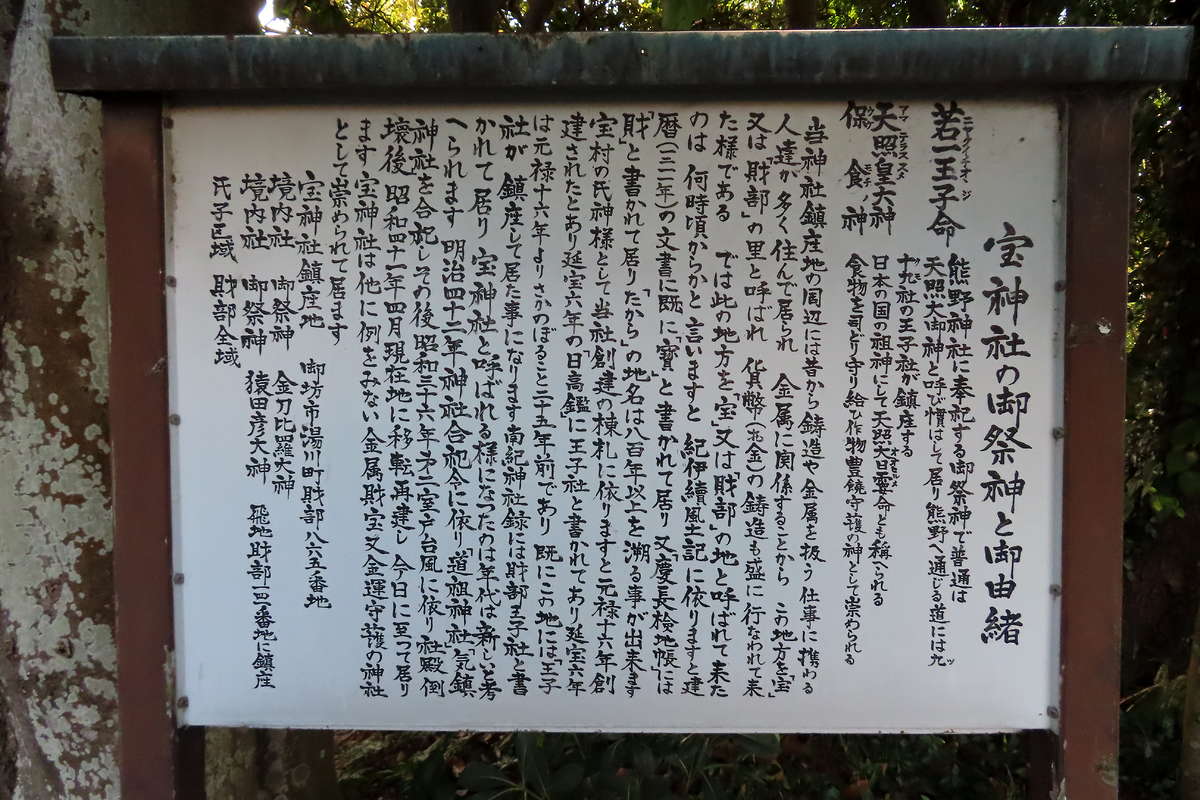 宝神社の御祭神と御由緒
若一王子命
ニャクイチオオジ
熊野神社に奉祀する御祭神で普通は
天照大御神と呼び慣はして居り熊野へ通じる道には九
十九社の王子社が鎮座する
天照皇大神
アマテラススメ
日本の国の祖神にして天照大日孁命とも稱へられる
保食神
ウケモチノ
食物を司どり守り給ひ作物豊饒守護の神として崇められる
当神社鎮座地の周辺には昔から鋳造や金属と扱う仕事に携わる
人達が多く住んで居られ 金属に関係することから この地方を「宝」
又は「財部」の里と呼ばれ 貨幣(お金)の鋳造も盛に行なわれて来
た様である では此の地方を「宝」又は「財部」の地と呼ばれて来た
のは 何時頃からかと言いますと 紀伊續風土記に依りますと建
暦(一二一一年)の文書に既に「寳」と書かれて居り 又「慶長検地帳」には
「財」と書かれて居り「たから」の地名は八百年以上を溯る事が出来ます
宝村の氏神様として当社創建の棟札に依りますと元禄十六年創
建されたとあり延宝六年の日高鑑」に王子社と書かれてあり延宝六年
は元禄十六年よりさかのぼること二十五年前であり 既にこの地には「王子
社が 鎮座して居た事になります南紀神社録には財部王子社と書
かれて居り 宝神社と呼ばれる様になったのは年代は新しいと考
へられます 明治四十二年神社合祀令に依り「道祖神社」「気鎮
神社」を合祀しその後昭和三十六年才二室戸台風に依り社殿倒
壊後 昭和四十一年四月現在地に移転再建し 今日に至って居り
ます 宝神社は他に例をみない金属財宝又金運守護の神社
として崇められて居ます
宝神社鎮座地 御坊市湯川町財部八六五番地
境内社 御祭神 金刀比羅大神
境内社 御祭神 猿田彦大神 飛地財部一四一番地に鎮座
氏子区域 財部全域